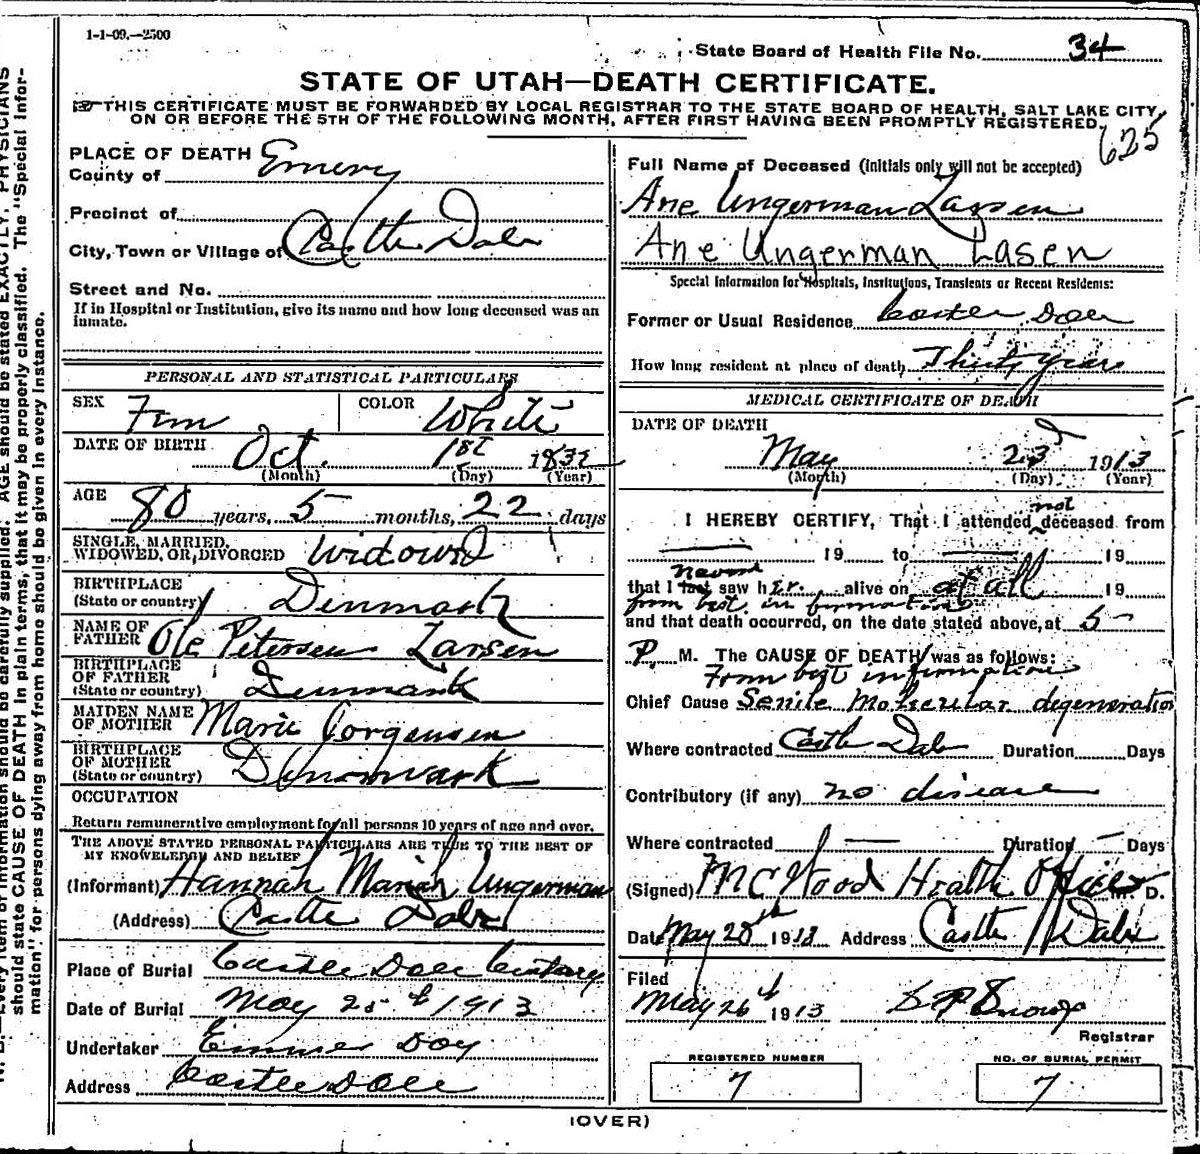 1-1-09.—2500
State Board of Health File No. 34
STATE OF UTAH—DEATH CERTIFICATE.
THIS CERTIFICATE MUST BE FORWARDED BY LOCAL REGISTRAR TO THE STATE BOARD OF HEALTH, SALT LAKE CITY,
ON OR BEFORE THE 5TH OF THE FOLLOWING MONTH, AFTER FIRST HAVING BEEN PROMPTLY REGISTERED.
625
PLACE OF DEATH
County of Emery
Precinct of
City, Town or Village of Castle Dale
Street and No.
If in Hospital or Institution, give its name and how long deceased was an
inmate.
PERSONAL AND STATISTICAL PARTICULARS
SEX Fem COLOR White
DATE OF BIRTH Oct. 1st 1832
(Month) (Day) (Year)
AGE 80 years, 5 months, 22 days
SINGLE, MARRIED,
WIDOWED, OR, DIVORCED Widowd
BIRTHPLACE
(State or country) Denmark
NAME OF
FATHER Ole Petersen Larsen
BIRTHPLACE
OF FATHER
(State or country) Denmark
MAIDEN NAME
OF MOTHER Marie Jorgensen
BIRTHPLACE
OF MOTHER
(State or country) Denmark
OCCUPATION
Return remunerative employment for all persons 10 years of age and over.
THE ABOVE STATED PERSONAL PARTICULARS ARE TRUE TO THE BEST OF
MY KNOWELEDGE AND BELIEF
(Informant) Hannah Mariah Ungerman
(Address) Castle Dale
Place of Burial Castle Dale
Date of Burial May 25th 1913
Undertaker
Address Castle Dale
Full Name of Deceased (initials only will not be accepted)
Ane Ungerman Larsen
Ane Ungerman Lasen
Special Information for Hospitals, Institutions, Transients or Recent Residents:
Former or Usual Residence Castle Dale
How long resident at place of death Thirty years
MEDICAL CERTIFICATE OF DEATH
DATE OF DEATH
May 23d 1913
(Month) (Day) (Year)
not
I HEREBY CERTIFY, That I attended deceased from
19 to 19
never
that I last saw her alive on at all 19
from best information
and that death occurred, on the date stated above, at 5
P. M. The CAUSE OF DEATH was as follows:
From best information
Chief Cause Senile Molecular degeneration
Where contracted Castle Dale Duration Days
Contributory (if any) no disease
Where contracted — Duration — Days
(Signed) Wood Health Officer M. D.
Date May 1913 Address Castle Dale
Filed
May 26th 1913
Registrar
REGISTERED NUMBER
7
NO. OF BURIAL PERMIT
7
(OVER)
N. B.—Every item of information should be carefully supplied. AGE should be stated EXACTLY. PHYSICIANS
should state CAUSE OF DEATH in plain terms, that it may be properly classified. The "Special Infor-
mation" for persons dying away from home should be given in every instance.